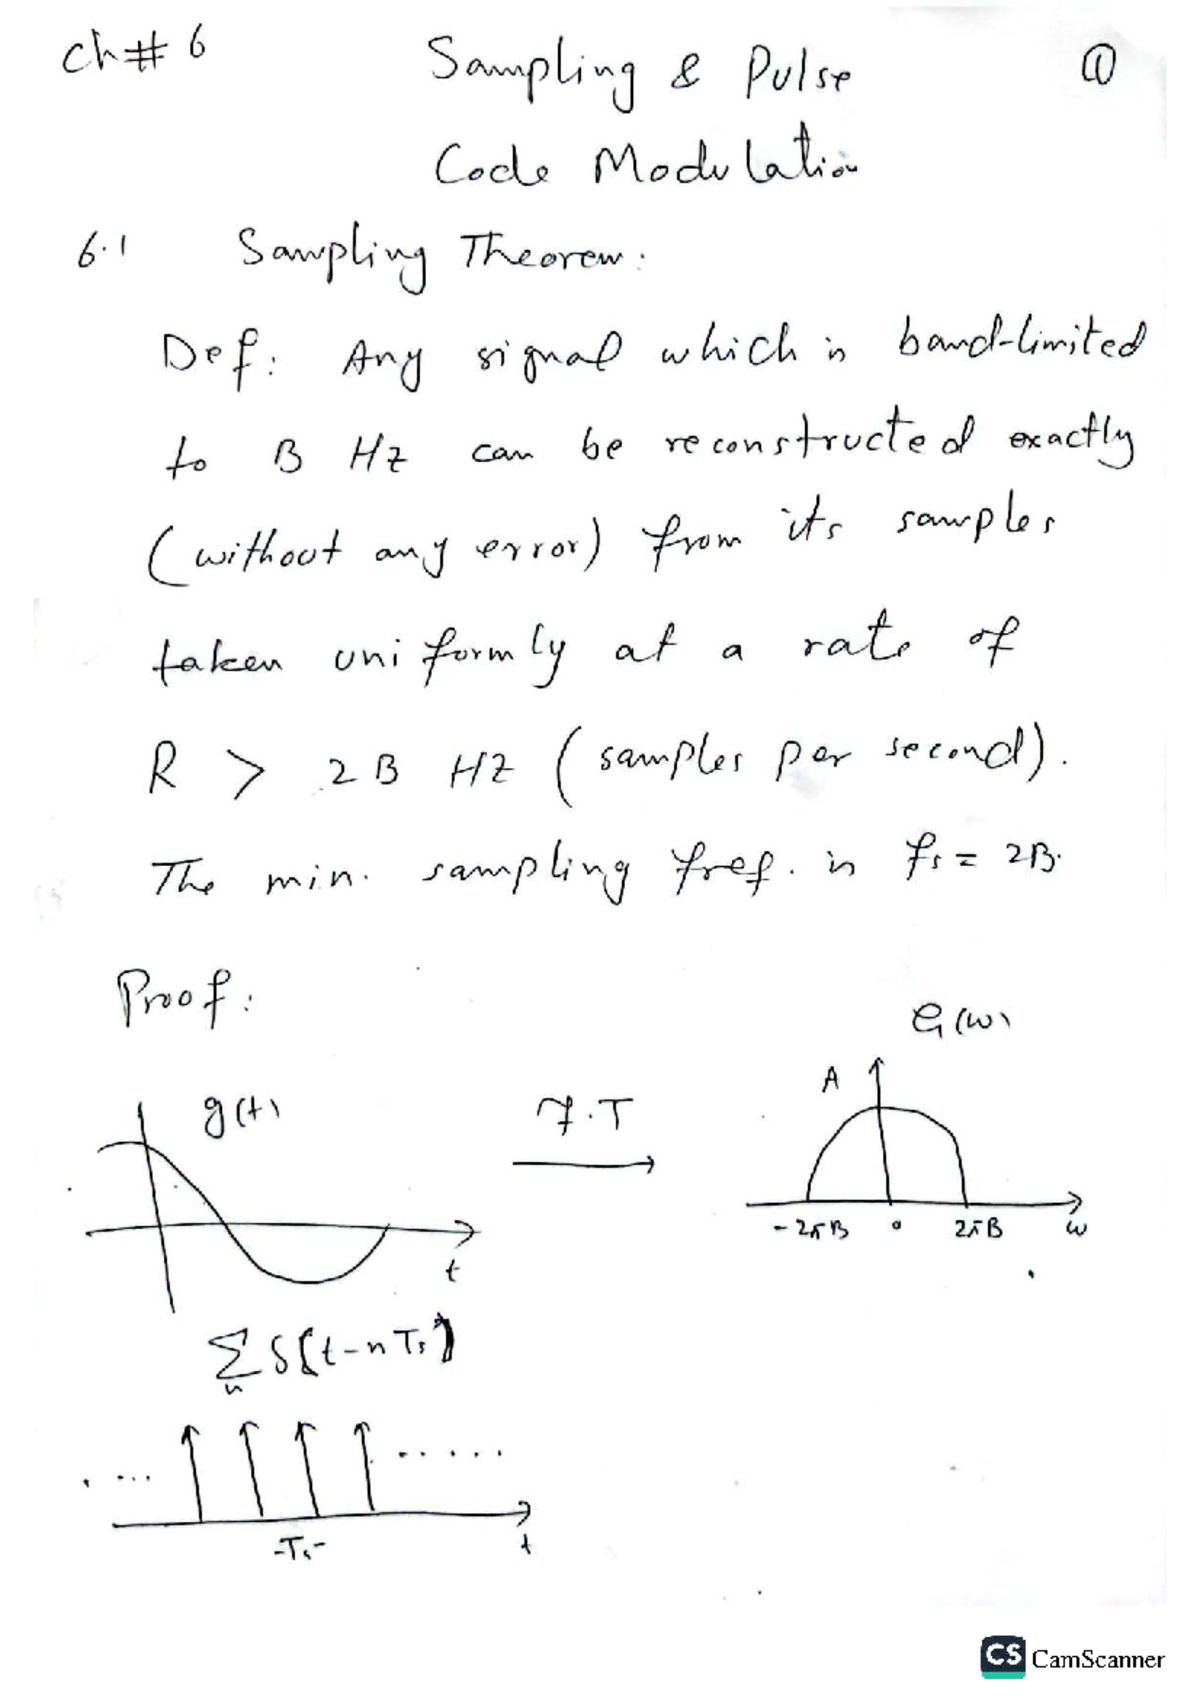 Ch# 6 Sampling & Pulse ①
Code Modulation
6.1 Sampling Theorem:
Def: Any signal which is band-limited
to B Hz can be reconstructed exactly
(without any error) from its samples
taken uniformly at a rate of
R > 2B Hz (samples per second).
The min. sampling freq. is fs = 2B.
Proof:
G(ω)
A
g(t)
F.T
-2πB 0 2πB ω
t
∑ δ(t-nTs)
n
.... ......
-Ts- t
CS CamScanner